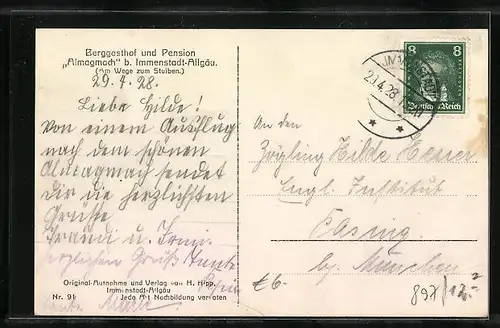 Berggasthof und Pension
„Almagmach" b. Immenstadt-Allgäu.
(Am Wege zum Stuiben.)
29.4.28.
Liebe Hilde!
Von einem Ausflug
nach dem schönen
Almagmach sendet
dir die herzlichsten
Grüße
u.
herzlichen Gruß Tante
Original-Aufnahme und Verlag von H. Hipp,
Immenstadt-Allgäu
Nr. 91 Jede Art Nachbildung verboten
IMMENSTADT
29.4.28
8 8
Deutsches Reich
An den
Zögling Hilde
Engl. Institut
Pasing
bey München
€6.-
897/